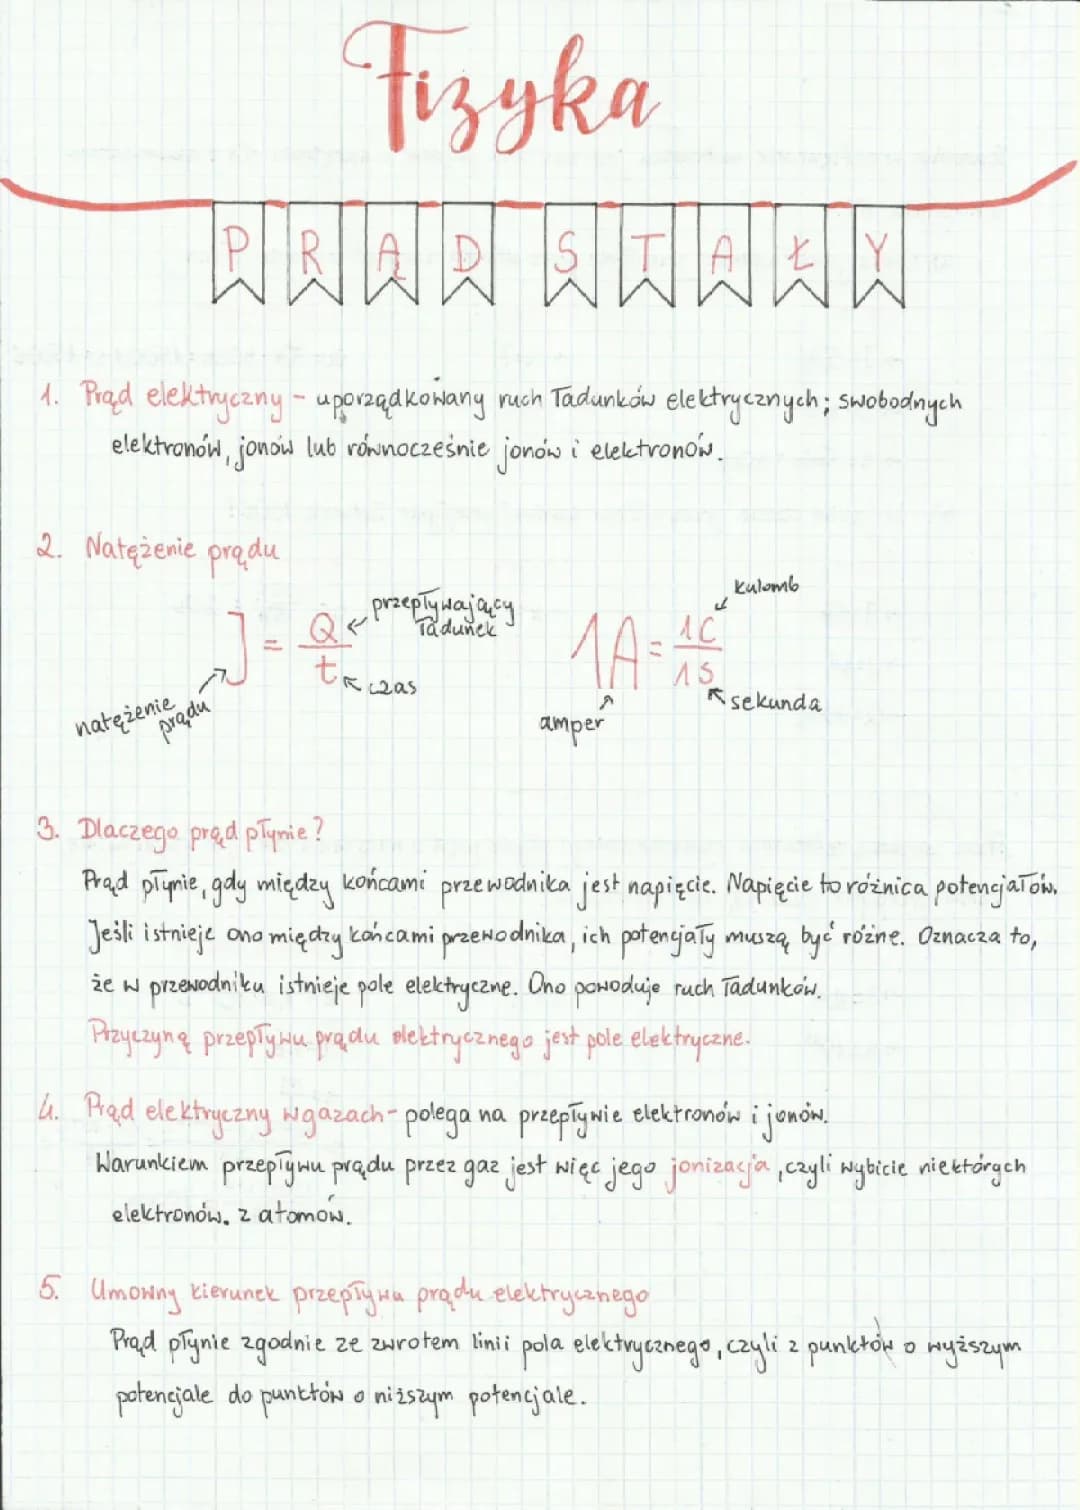 Fizyka
PRĄD STAŁY
1. Prąd elektryczny - uporządkowany ruch ładunków elektrycznych; swobodnych
elektronów, jonów lub równocześnie jonów i elektronów.
2. Natężenie prądu
J = Q/t
przepływający ładunek
czas
natężenie prądu
1A = 1C/1s
kulomb
sekunda
amper
3. Dlaczego prąd płynie?
Prąd płynie, gdy między końcami przewodnika jest napięcie. Napięcie to różnica potencjałów.
Jeśli istnieje ono między końcami przewodnika, ich potencjały muszą być różne. Oznacza to,
że w przewodniku istnieje pole elektryczne. Ono powoduje ruch ładunków.
Przyczyną przepływu prądu elektrycznego jest pole elektryczne.
4. Prąd elektryczny w gazach - polega na przepływie elektronów i jonów.
Warunkiem przepływu prądu przez gaz jest więc jego jonizacja, czyli wybicie niektórych
elektronów. z atomów.
5. Umowny kierunek przepływu prądu elektrycznego
Prąd płynie zgodnie ze zwrotem linii pola elektrycznego, czyli z punktów o wyższym
potencjale do punktów o niższym potencjale.